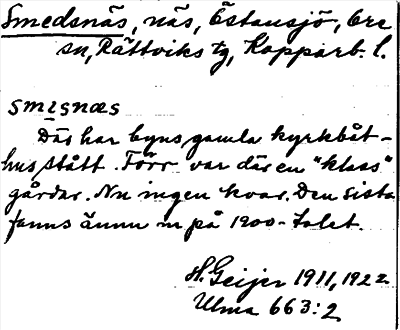 Smedsnäs, näs, Östansjö, Ore
sn, Rättviks tg, Kopparb. l.
smisnæs
Där har byns gamla kyrkbåt-
hus stått. Förr var där en "klass"
gårdar. Nu ingen kvar. Den sista
fanns ännu in på 1900-talet.
H. Geijer 1911, 1922
Ulma 663:2